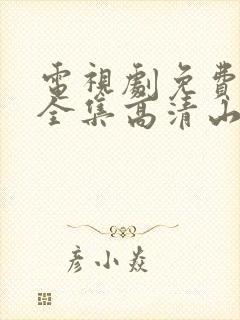 電視劇免費
全集高清山
彦小焱